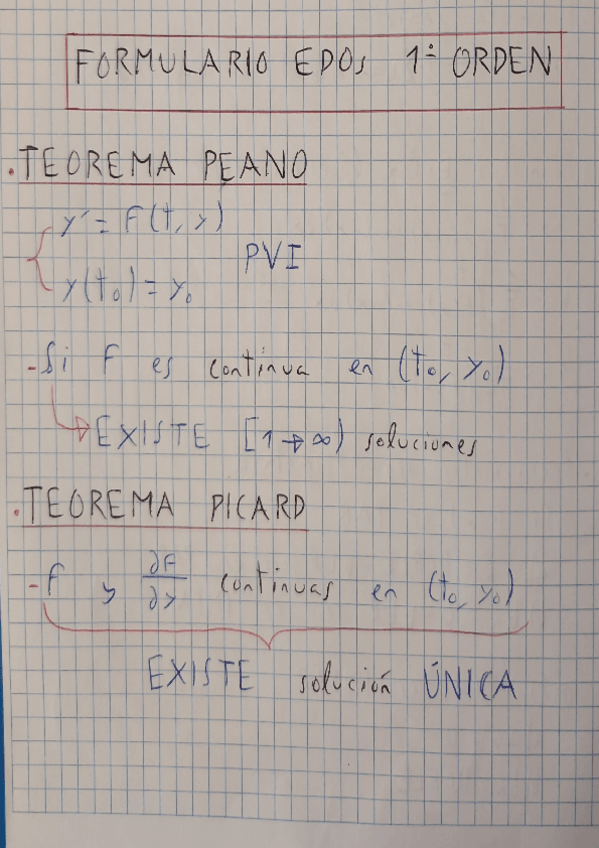 FORMULARIO EDOs 1º ORDEN
.TEOREMA PEANO
y' = F(t, y)
PVI
y(t₀) = y₀
-Si F es continua en (t₀, y₀)
EXISTE [1→∞) soluciones
.TEOREMA PICARD
-F y ∂F/∂y continuas en (t₀, y₀)
EXISTE solución ÚNICA